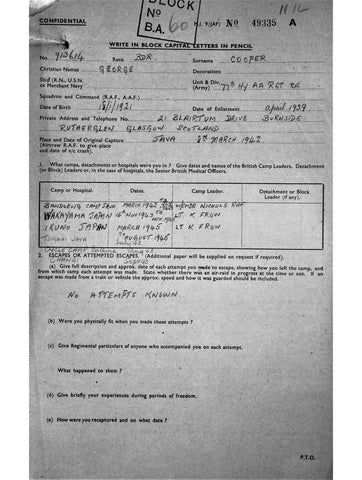 BLOCK
No
B.A. 60
N 14
CONFIDENTIAL
M.I. 9/JAP/ No 49335 A
WRITE IN BLOCK CAPITAL LETTERS IN PENCIL
No. 913614 Rank BDR. Surname COOPER
Christian Names GEORGE Decorations
Ship (R.N., U.S.N. or Merchant Navy) Unit & Div. (Army) 77th HY AA RGT RA
Squadron and Command (R.A.F., A.A.F.)
Date of Birth 1921 Date of Enlistment April 1939
Private Address and Telephone No. 21 BLAIRTUM DRIVE BURNSIDE
RUTHERGLEN GLASGOW SCOTLAND
Place and Date of Original Capture JAVA 8th MARCH 1942
(Aircrew R.A.F. to give place and date of a/c crash).
1. What camps, detachments or hospitals were you in? Give dates and names of the British Camp Leaders, Detachment (or Block) Leaders or, in the case of hospitals, the Senior British Medical Officers.
Camp or Hospital. Dates. Camp Leader. Detachment or Block Leader (if any).
BANDOENG CAMP JAVA MARCH 1942 W/CMDR NICHOLS RAF
WAKAYAMA JAPAN 16th NOV 1943 TO LT. K FROW
IKUNO JAPAN MARCH 1945 LT K FROW
JAVA TO AUGUST 1945
CAMP
CHANGI
2. ESCAPES OR ATTEMPTED ESCAPES. (Additional paper will be supplied on request if required).
(a) Give full description and approx. date of each attempt you made to escape, showing how you left the camp, and from which camp each attempt was made. State whether there was an air-raid in progress at the time or not. If an escape was made from a train or vehicle the approx. speed and how it was guarded should be included.
NO ATTEMPTS KNOWN
(b) Were you physically fit when you made these attempts ?
(c) Give Regimental particulars of anyone who accompanied you on each attempt.
What happened to them ?
(d) Give briefly your experiences during periods of freedom.
(e) How were you recaptured and on what date ?
P.T.O.